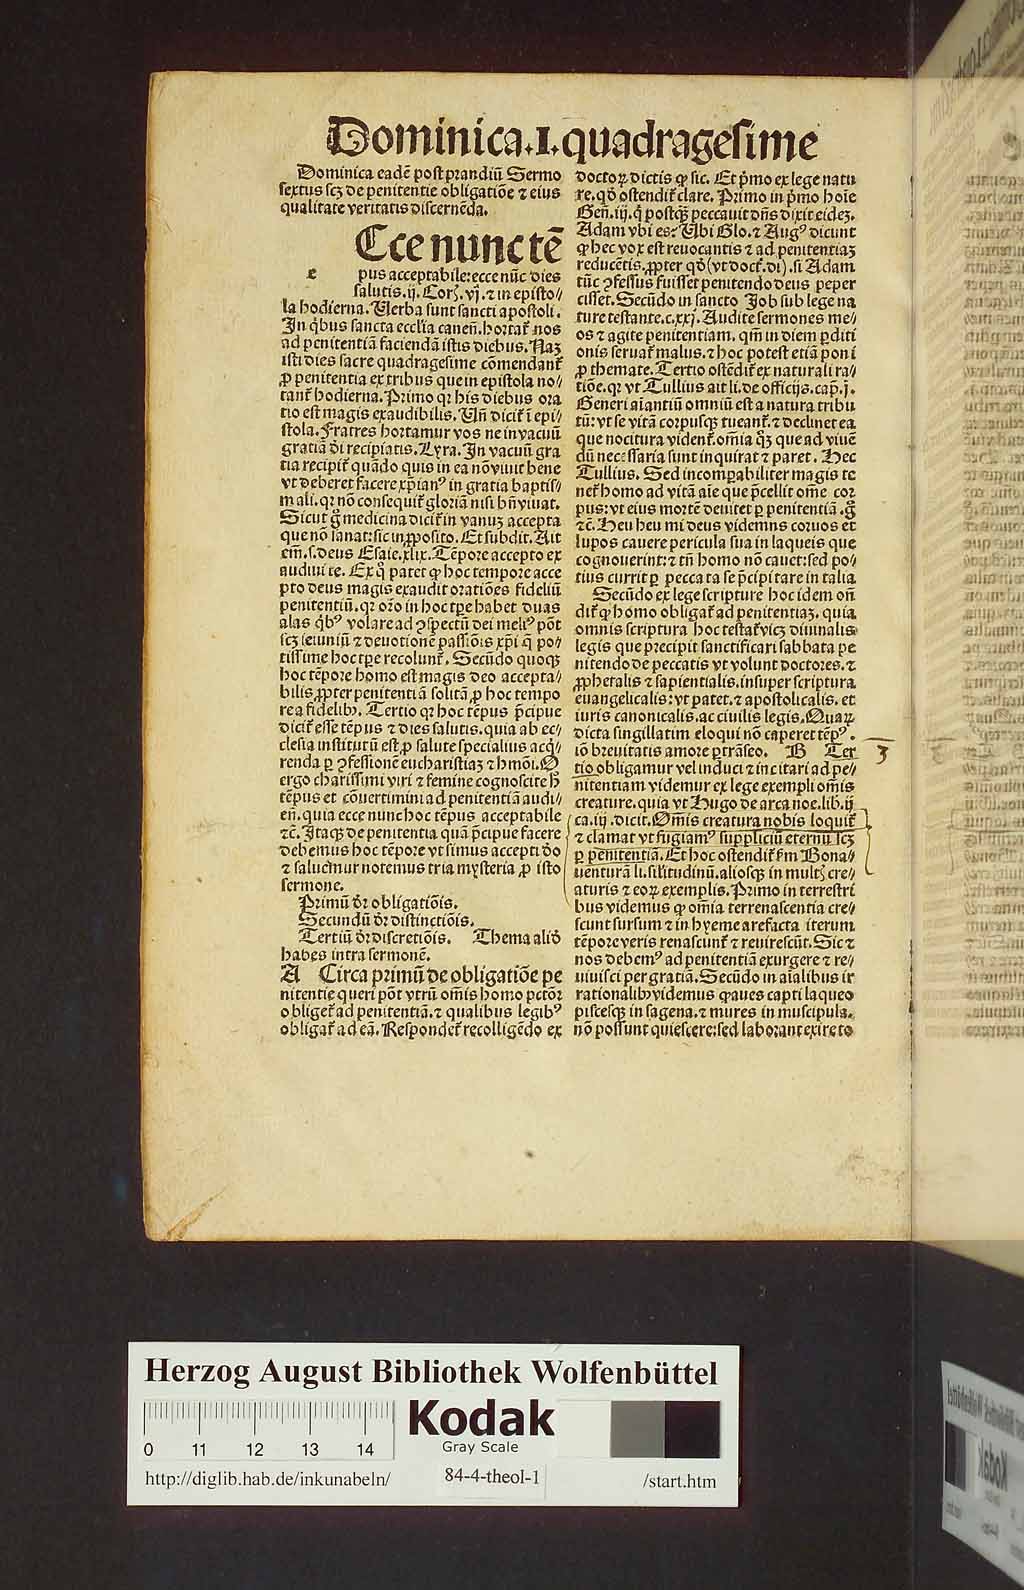 Dominica.I.quadragesime
Dominica eadē post prandiū Sermo
sextus scꝫ de penitentie obligatiōe ⁊ eius
qualitate veritatis discernēda.
Ecce nunc tē
e pus acceptabile: ecce nūc dies
salutis. ij. Corꝭ. vj. ⁊ in episto⸗
la hodierna. Verba sunt sancti apostoli.
In qͥbus sancta ecclīa canēn̄. hortat᷑ nos
ad penitentiā faciendā istis diebus. Naꝫ
isti dies sacre quadragesime cōmendant᷑
ꝓ penitentia ex tribus que in epistola no⸗
tant᷑ hodierna. Primo qꝛ his diebus ora
tio est magis exaudibilis. Vn̄ dicit᷑ ī epi⸗
stola. Fratres hortamur vos ne in vacuū
gratiā d̄i recipiatis. Lyra. In vacuū gra
tia recipit᷑ quādo quis in ea nō viuit bene
vt deberet facere xp̄ianꝰ in gratia baptis⸗
mali. qꝛ nō consequit᷑ gloriā nisi bn̄ viuat.
Sicut g̊ medicina dicit᷑ in vanuꝫ accepta
que nō sanat: sic in ꝓposito. Et subdit. Ait
em̄. s. deus Esaie. xlix. Tēpore accepto ex
audiui te. Ex qͦ patet ꝙ hoc tempore acce
pto deus magis exaudit oratiōes fideliū
penitentiū. qꝛ or̄o in hoc tꝑe habet duas
alas qͥbꝰ volare ad ꝯspectū dei meliꝰ pōt
scꝫ ieiuniū ⁊ deuotionē passiōis xp̄i q̄ po⸗
tissime hoc tꝑe recolunt᷑. Secūdo quoqꝫ
hoc tēpore homo est magis deo accepta⸗
bilis ꝓpter penitentiā solitā ꝓ hoc tempo
re a fidelibꝫ. Tertio qꝛ hoc tēpus p̄cipue
dicit᷑ esse tēpus ⁊ dies salutis. quia ab ec⸗
clesia institutū est ꝓ salute specialius acq̄⸗
renda ꝑ ꝯfessionē eucharistiaꝫ ⁊ hmōi. O
ergo charissimi viri ⁊ femine cognoscite h̄
tēpus et cōuertimini ad penitentiā audi⸗
en̄. quia ecce nunc hoc tēpus acceptabile
⁊c̄. Itaqꝫ de penitentia quā p̄cipue facere
debemus hoc tēpore vt simus accepti d̄o
⁊ saluemur notemus tria mysteria ꝓ isto
sermone.
Primū d̄r obligatiōis.
Secundū d̄r distinctiōis.
Tertiū d̄r discretiōis. Thema aliō
habes intra sermonē.
A Circa primū de obligatiōe pe
nitentie queri pōt vtrū om̄is homo pctōr
obliget᷑ ad penitentiā. ⁊ qualibus legibꝰ
obligat᷑ ad eā. Respondet᷑ recolligēdo ex
doctoꝝ dictis ꝙ sic. Et p̄mo ex lege natu
re. qd̄ ostendit᷑ clare. Primo in p̄mo hoīe
Gen̄. iij. q̄ postqꝫ peccauit dn̄s dixit eideꝫ.
Adam vbi es? Vbi Glo. ⁊ Augꝰ dicunt
ꝙ hec vox est reuocantis ⁊ ad penitentiaꝫ
reducētis. ꝓpter qd̄ (vt doct᷑. di). si Adam
tūc ꝯfessus fuisset penitendo deus peper
cisset. Secūdo in sancto Job sub lege na
ture testante. c. xxj. Audite sermones me⸗
os ⁊ agite penitentiam. qm̄ in diem ꝑditi
onis seruat᷑ malus. ⁊ hoc potest etiā poni
ꝓ themate. Tertio ostēdit᷑ ex naturali ra⸗
tiōe. qꝛ vt Tullius ait li. de officijs. cap̄. j.
Generi aīantiū omniū est a natura tribu
tū: vt se vitā corpusqꝫ tueant᷑. ⁊ declinet ea
que nocitura vident᷑. om̄ia qꝫ que ad viuē
dū necessaria sunt inquirat ⁊ paret. Hec
Tullius. Sed incomꝑabiliter magis te
net᷑ homo ad vitā aīe que p̄cellit om̄e cor
pus: vt eius mortē deuitet ꝑ penitentiā. g̊
⁊c̄. Heu heu mi deus videmus coruos et
lupos cauere pericula sua in laqueis que
cognouerint: ⁊ tn̄ homo nō cauet: sed po⸗
tius currit ꝑ peccata se p̄cipitare in talia
Secūdo ex lege scripture hoc idem on̄
dit᷑ ꝙ homo obligat᷑ ad penitentiaꝫ. quia
omnis scriptura hoc testat᷑ vicꝫ diuinalis
legis que precipit sanctificari sabbata pe
nitendo de peccatis vt volunt doctores. ⁊
ꝓphetalis ⁊ sapientialis. insuper scriptura
euangelicalis: vt patet. ⁊ apostolicalis. et
iuris canonicalis. ac ciuilis legis. Quaꝝ
dicta singillatim eloqui nō caperet tēpꝰ.
iō breuitatis amore ꝑtrāseo. B Ter
3
tio obligamur vel induci ⁊ incitari ad pe⸗
nitentiam videmur ex lege exempli om̄is
creature. quia vt Hugo de arca noe. lib. ij
ca. iij. dicit. Om̄is creatura nobis loquit᷑
⁊ clamat vt fugiamꝰ suppliciū eternū scꝫ
ꝑ penitentiā. Et hoc ostendit᷑ ẜm Bona⸗
uenturā li. silitudinū. aliosqꝫ in multꝭ cre⸗
aturis ⁊ eoꝝ exemplis. Primo in terrestri
bus videmus ꝙ om̄ia terrenascentia cre⸗
scunt sursum ⁊ in hyeme arefacta iterum
tēpore veris renascunt᷑ ⁊ reuirescūt. Sic ⁊
nos debemꝰ ad penitentiā exurgere ⁊ re⸗
uiuisci per gratiā. Secūdo in aīalibus ir
rationalibꝫ videmus ꝙ aues capti laqueo
piscesqꝫ in sagena. ⁊ mures in muscipula.
nō possunt quiescere: sed laborant exire to
Herzog August Bibliothek Wolfenbüttel
Kodak
Gray Scale
0 11 12 13 14
http://diglib.hab.de/inkunabeln/ 84-4-theol-1 /start.htm